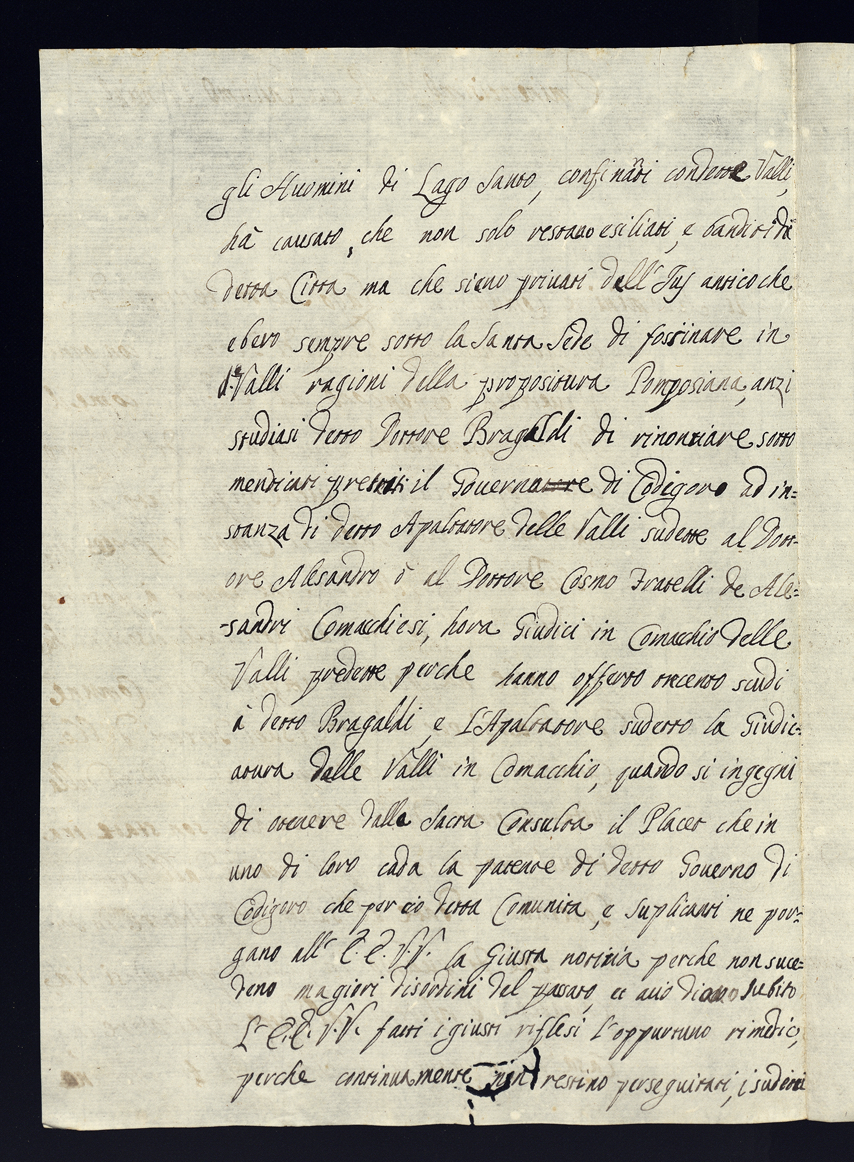 gli Huomini di Lago Santo, confinãti con dette Valli,
hà causato, che non solo restano esiliati, e banditi di
detta Citta ma che sieno privati dell'Jus antico che
ebero sempre sotto la Santa Sede di fossinare in
d.e Valli ragioni della propositura Pomposiana, anzi
studiasi detto Dottore Bragaldi di rinontiare sotto
mendicati pretesti il Governatore di Codigoro ad in=
stanza di detto Apaltatore delle Valli sudette al Dott=
ore Alesandro ò al Dottore Cosmo Fratelli de Ale=
=sandri Comacchiesi, hora Giudici in Comacchio delle
Valli predette perche hanno offerto trecento scudi
à detto Bragaldi, e L'Apaltatore sudetto la Giudic=
atura delle Valli in Comacchio, quando si ingegni
di otenere dalla Sacra Consulta il Placet che in
uno di loro cada la patente di detto Governo di
Codigoro che per ciò detta Comunita, e suplicanti ne por=
gano all' E.E. V.V. la Giusta notitia perche non suce=
deno magiori disordini del passato, et aciò diano subito
L' E.E. V.V. fatti i giusti riflesi l'oppurtuno rimedio,
perche continuamente non restino perseguitati, i sudetti